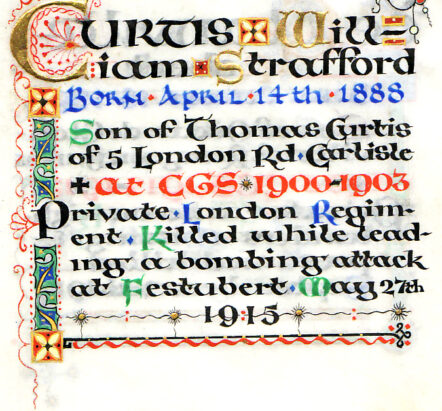 CURTIS Will=
iam Strafford
Born · April · 14th · 1888
Son of Thomas Curtis
of 5 London Rd · Carlisle
+ at CGS 1900-1903
Private · London Regim-
ent · Killed while lead-
ing a bombing attack
at Festubert · May 27th
1915